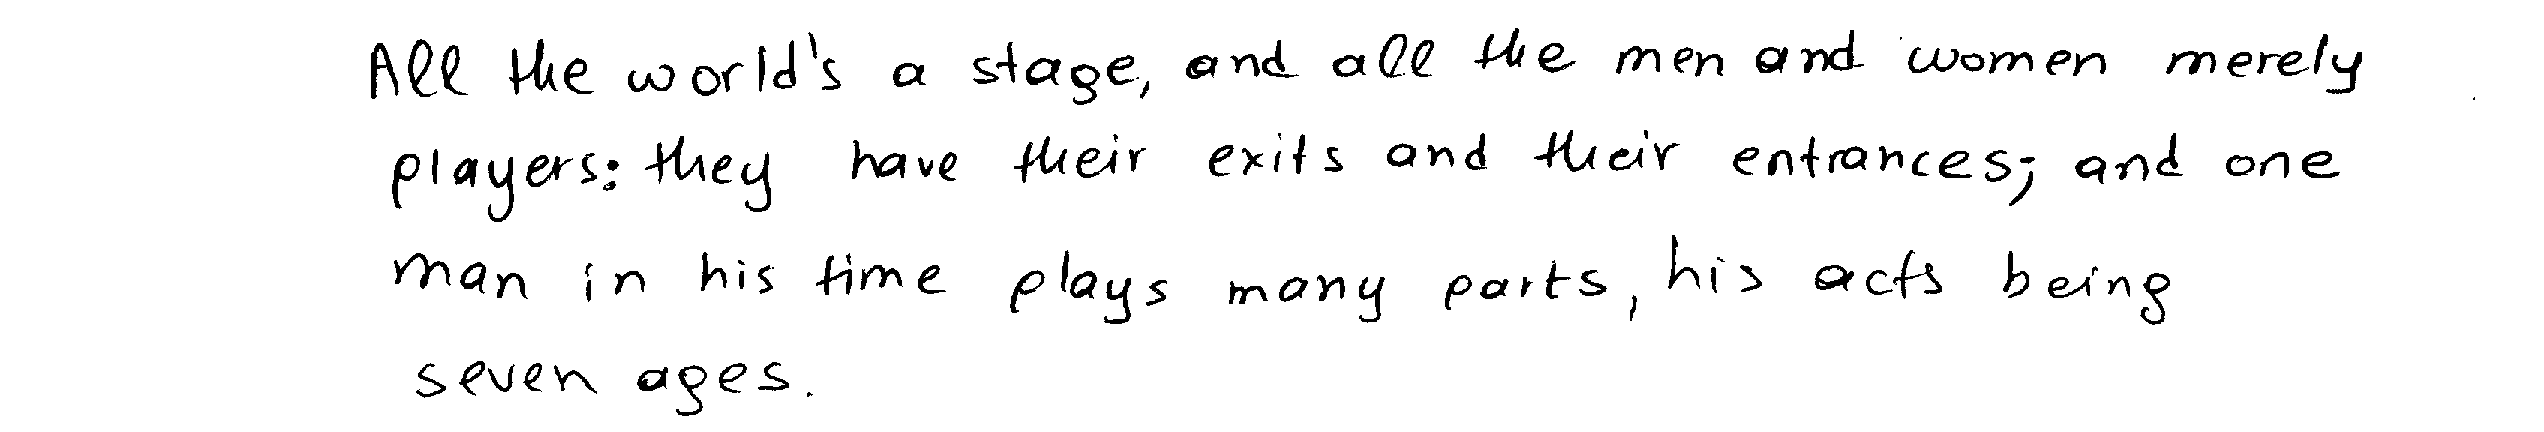 All the world's a stage, and all the men and women merely
players: they have their exits and their entrances; and one
man in his time plays many parts, his acts being
seven ages.